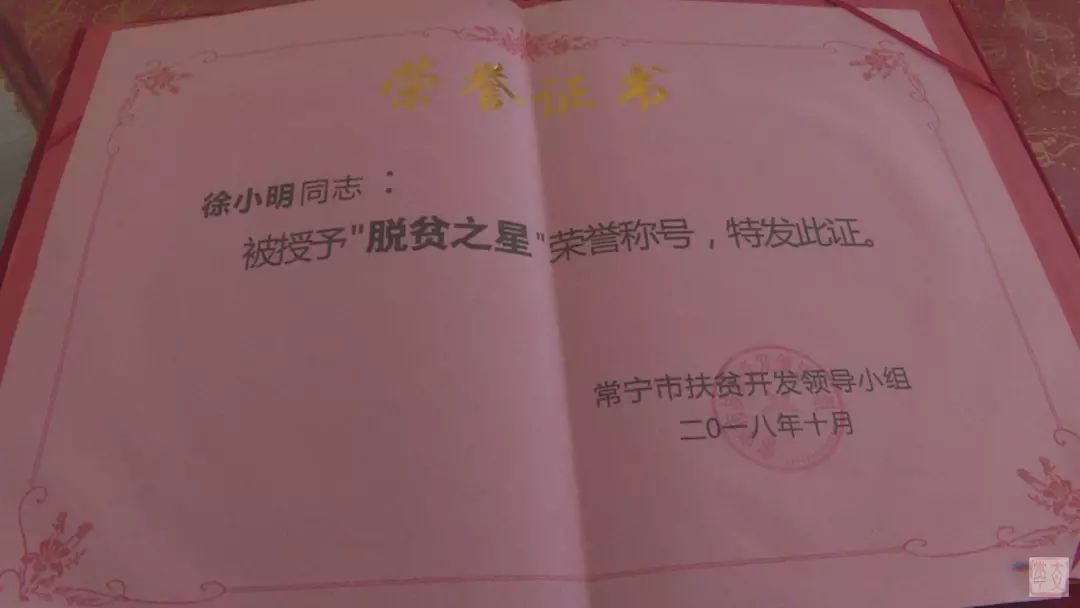 荣誉证书
徐小明同志：
被授予"脱贫之星"荣誉称号，特发此证。
常宁市扶贫开发领导小组
二0一八年十月